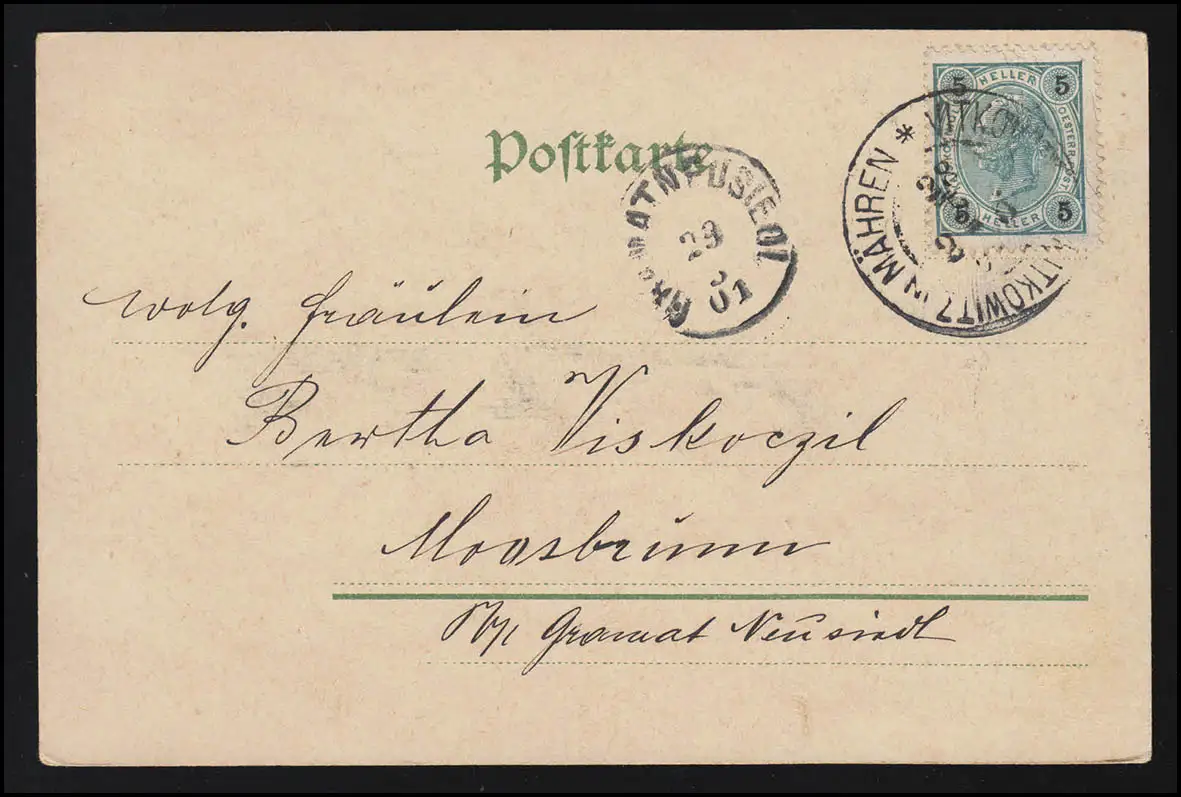 Postkarte
5 HELLER 5
OESTERR. POST.
5 HELLER 5
WITKOWITZ IN MÄHREN *
GRAMATNEUSIEDL
23
01
wolg. Fräulein
Bertha Viskoczil
Moosbrunn
Gramat Neusiedl